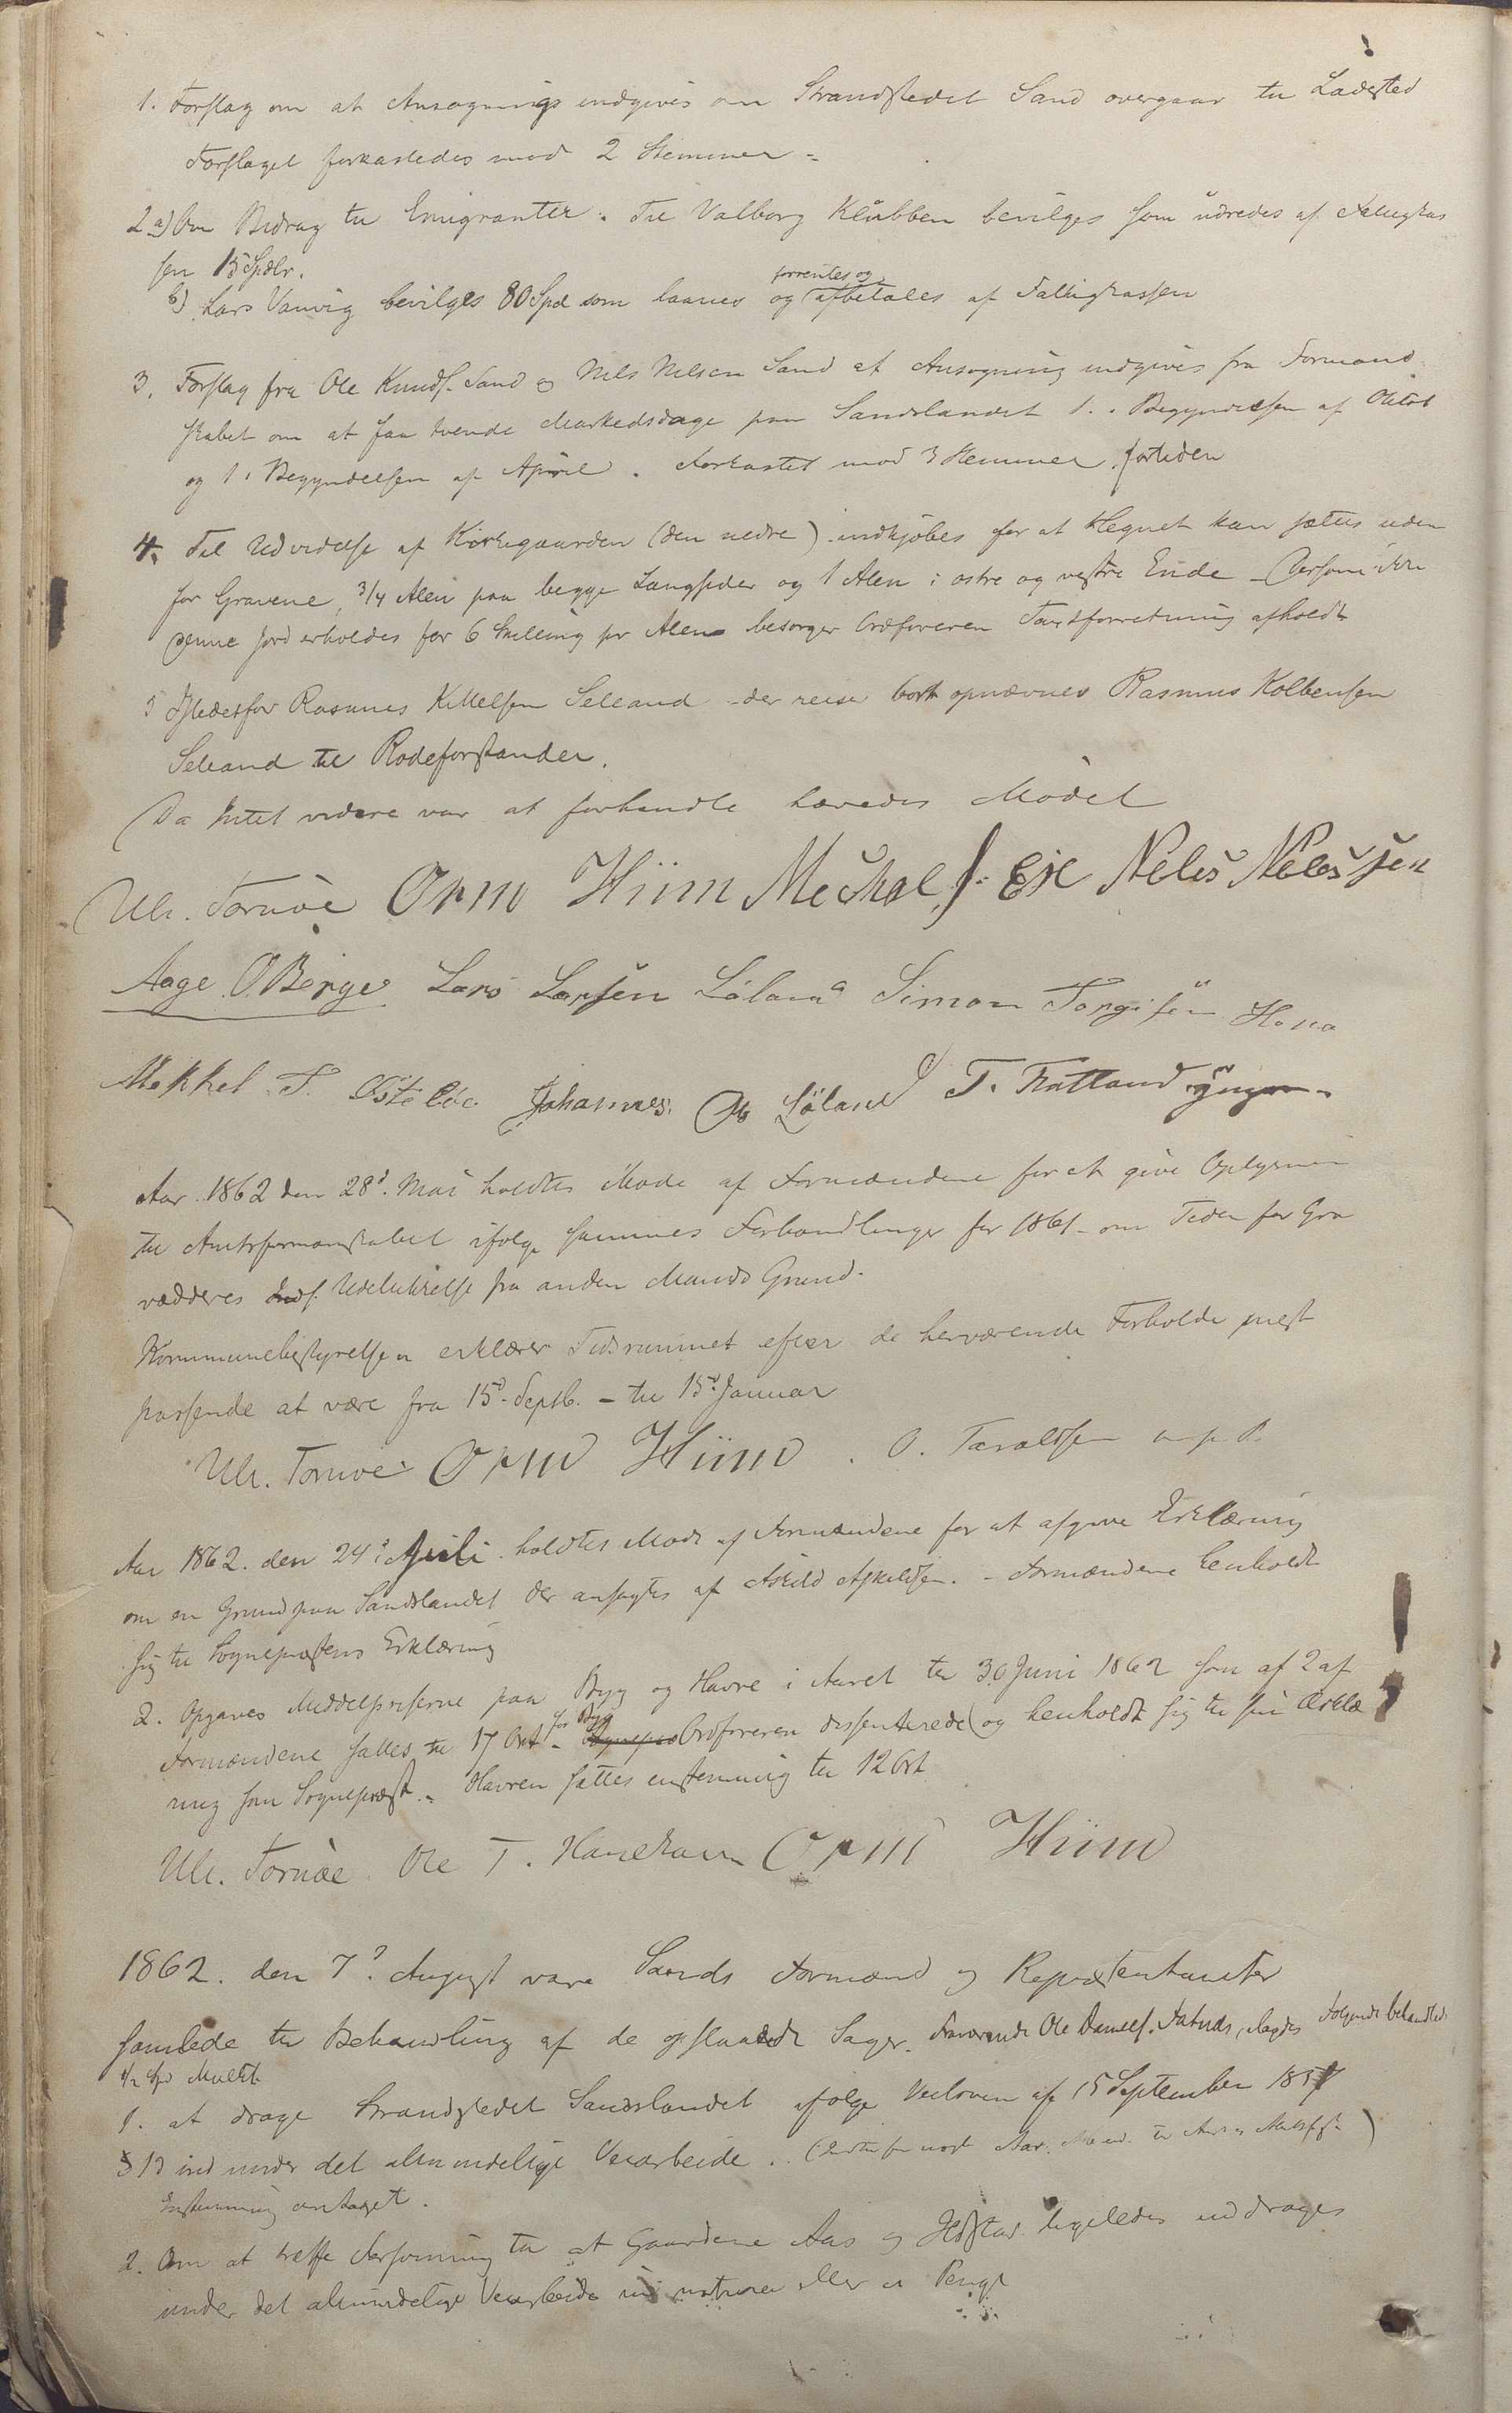 1. Forslag om at Ansøgnings indgives om Strandstedet Sand overgaar til Ladested
Forslaget forkastedes mod 2 Stemmer.
2 a) Om Bidrag til Emigranter. Til Valborg Klubben bevilges som udredes af Fattigkas
sen 15 Spdlr.
b) Lars Vanvig bevilges 80 Spd som laanes og forrentes og afbetales af Fattigkassen
3. Forslag fra Ole Knuds. Sand og Nils Nilsen Sand at Ansøgning indgives fra Formand
skabet om at faa tvende Markedsdage paa Sandslandet 1 i Begyndelsen af Oktob
og 1 i Begyndelsen af April. Forkastet mod 3 Stemmer fortiden
4. Til Udvidelse af Kirkegaarden (den nedre) indkjøbes for at Hegnet kan sættes uden
for Gravene, 3/4 Alen paa begge Langsider og 1 Alen i østre og vestre Ende - Dersom ikke
denne Jord erholdes for 6 Skilling pr Alen besørger Ordføreren Taxtforretning afholdt
5 Istedetfor Rasmus Kittelsen Seleand der reiser bort opnævnes Rasmus Kolbensen
Seleand til Rodeforstander.
Da Intet videre var at forhandle hævedes Mødet
Ulr. Tornøe Orm Hiim Mechal J. Eie Neles Nelessen
Aage O Berge Lars Larsen Løland Simon Torgisen
Mekkel T. Johannes Løland T. Fatland
Aar 1862 den 28d. Mai holdtes Møde af Formændene for at give Oplysning
til Amtsformandskabet ifølge sammes Forhandlinger for 1861 - om Tiden for Gra
vædderes Udelukkelse fra anden Mands Grund.
Kommunebestyrelsen erklærer Tidsrummet efter de herværende Forholde mest
passende at være fra 15d. Septb. - til 15d. Januar
Ulr. Tornøe Orm Hiim . O. Taraldsen m. p. P.
Aar 1862. den 24d. Juli holdtes Møde af Formændene for at afgive Erklæring
om en Grund paa Sandslandet der ansøgtes af Askild Askildsen. - Formændene henholdt
sig til Sognepræstens Erklæring
2. Opgaves Middelpriserne paa Byg og Havre i Aaret til 30 Juni 1862 som af 2 af
Formændene sattes til 17 Ort for Byg - Ordføreren dissenterede og henholdt sig til sin Erklæ
ring som Sognepræst. - Havren sattes enstemmig til 12 Ort
Ulr. Tornøe Ole T. Hanekam Orm Hiim
1862. den 7d. August vare Sands Formænd og Repræsentanter
samlede til Behandling af de opslaaede Sager. Fraværende Ole Daniels. Følgende behandledes
1/2 Spd Mulkt
1. at drage Strandstedet Sandslandet ifølge Veiloven af 15 September 1851
§ 13 ind under det almindelige Veiarbeide.
Enstemmig antaget.
2. Om at træffe Forføining til at Gaardene Aas og ligeledes inddrages
under det almindelige Veiarbeide in natura eller i Penge